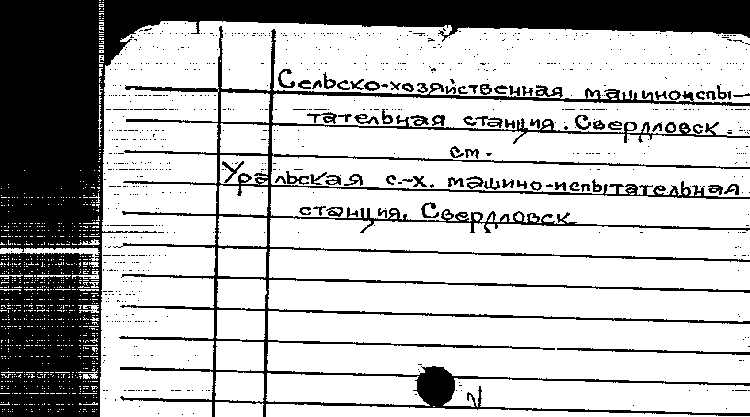 Сельско-хозяйственная машиноиспы-
тательная станция. Свердловск.
см.
Уральская с.-х. машино-испытательная
станция. Свердловск